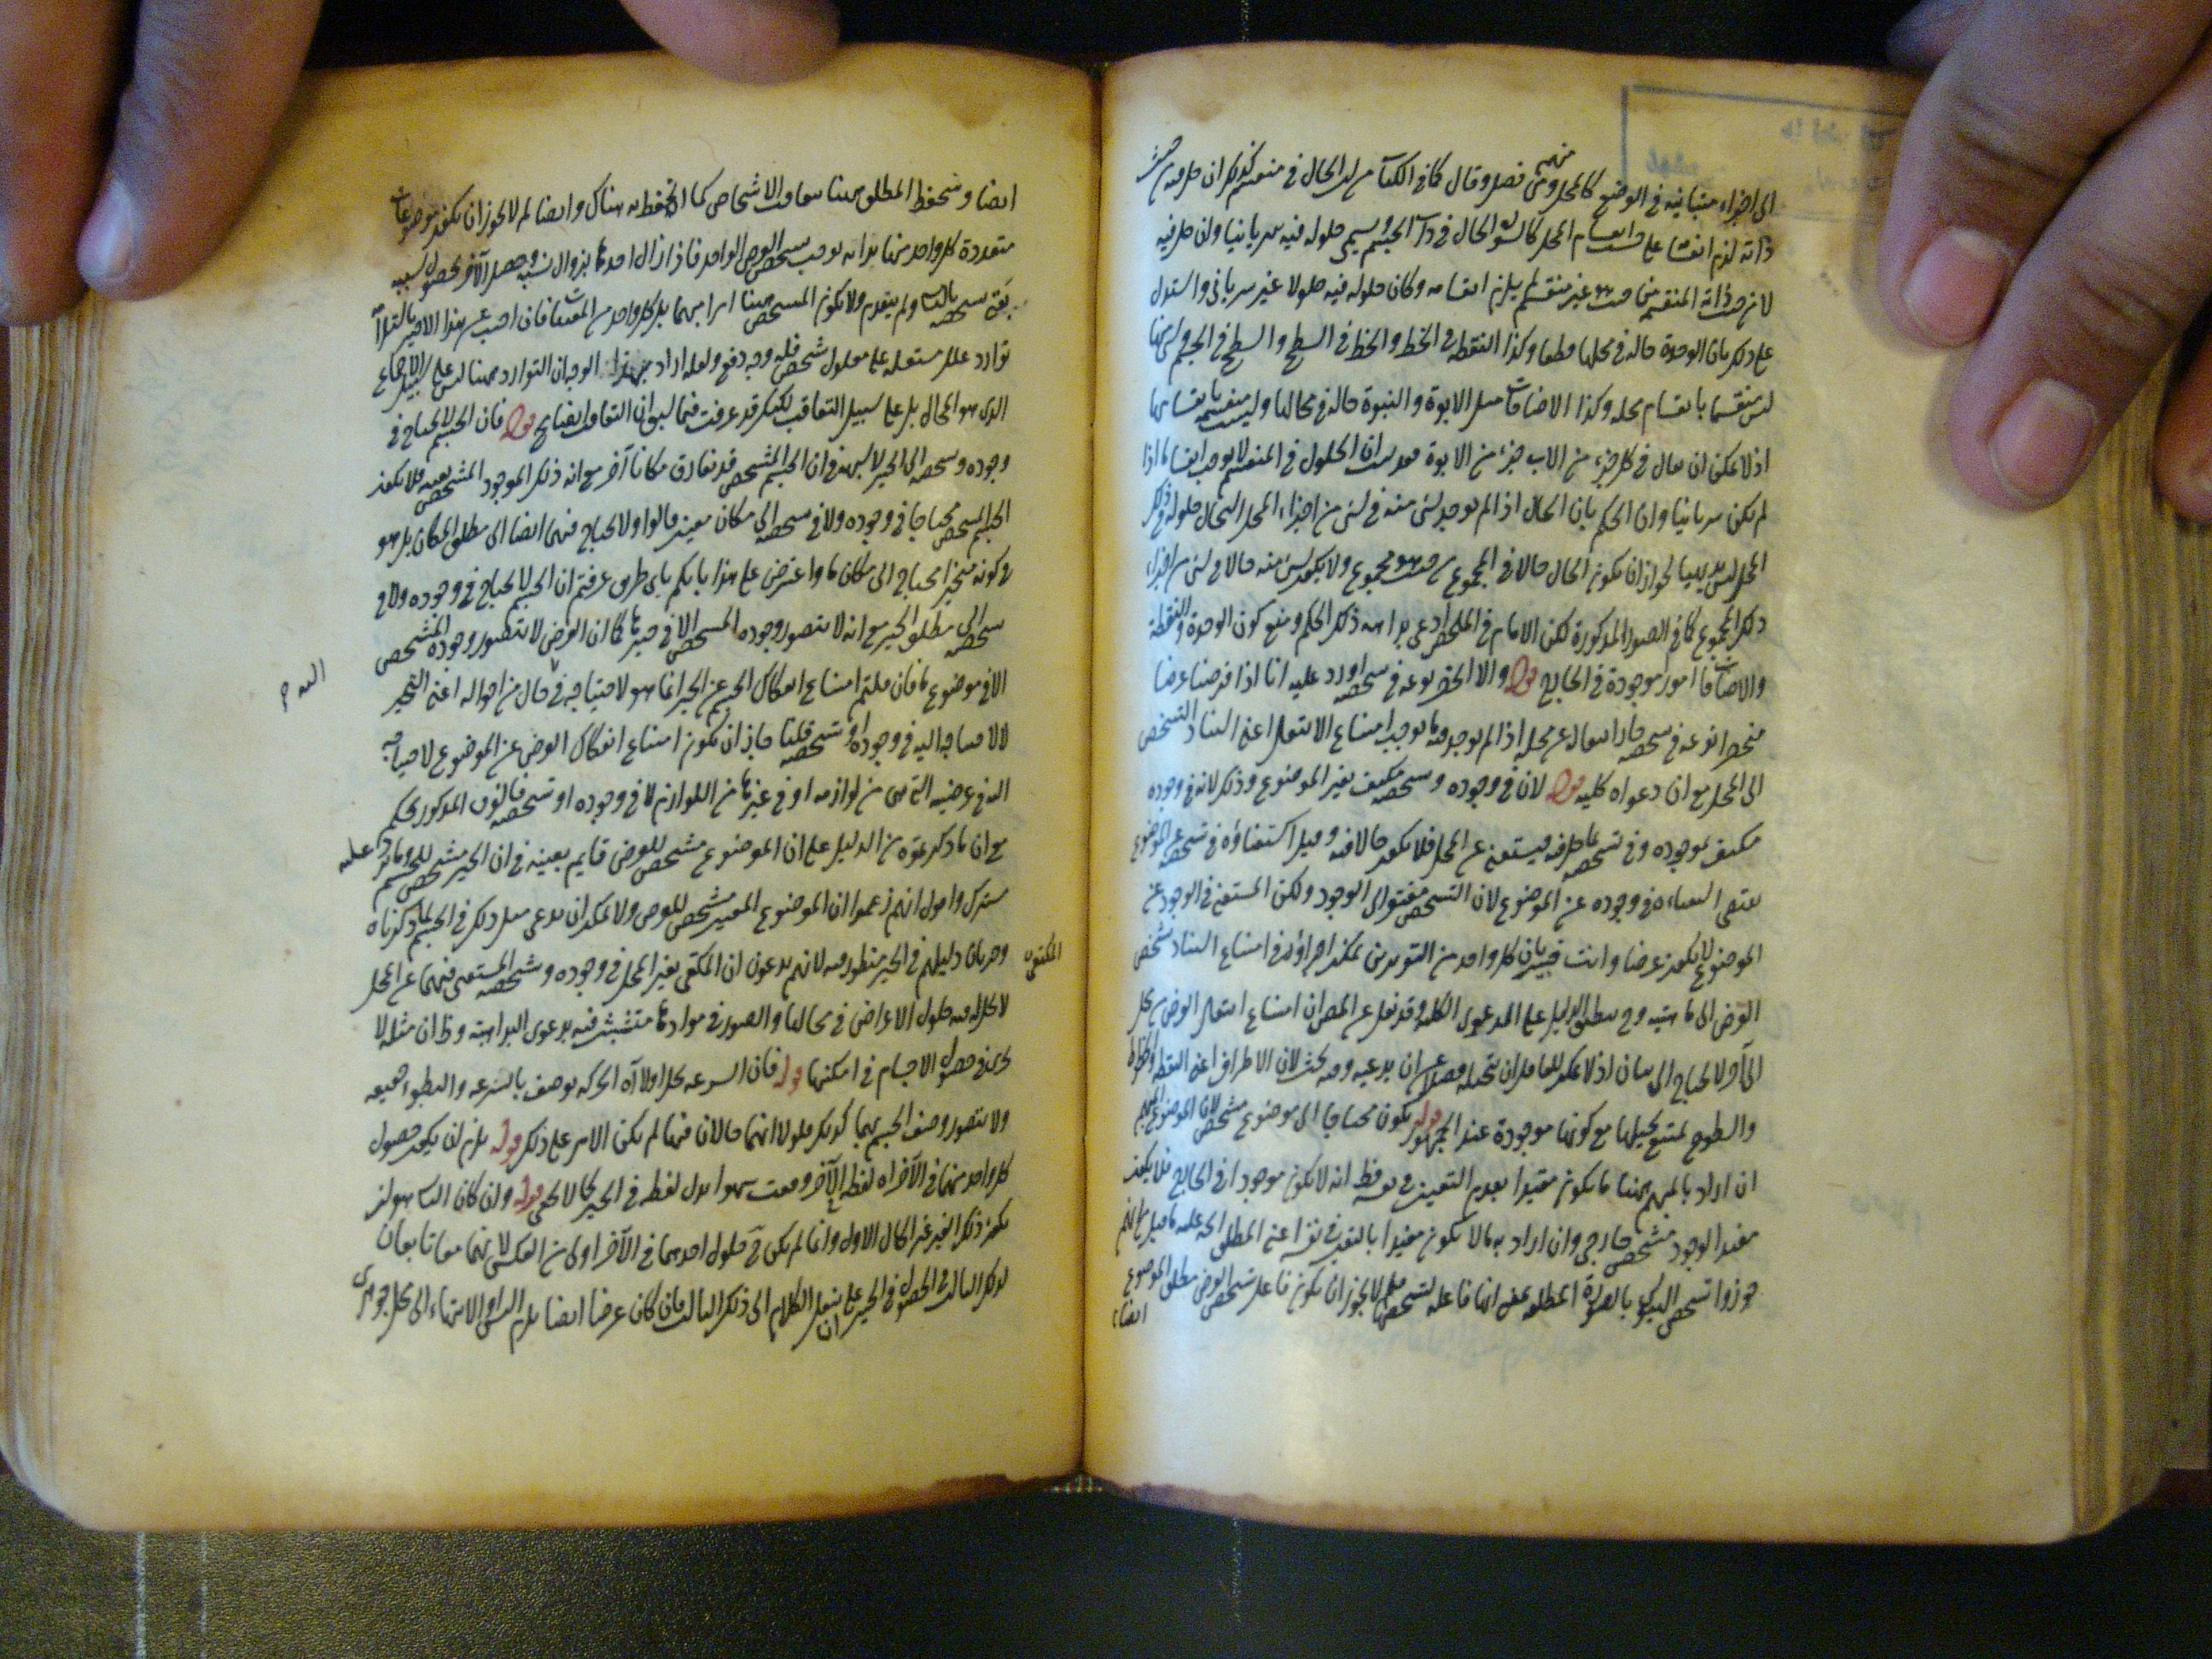 الى اجزاء متباينة في الوضع كالمحل ومنهم من فصل وقال كما في الكتاب من ان الحال في منقسم كذلك ان حل فيه من حيث
ذاته لزم انقسامه على حسب انقسام المحل كالسواد الحال في ذات الجسم ويسمى حلوله فيه سريانيا وان حل فيه
لا من حيث ذاته المنقسمة بل من حيث هو غير منقسم لم يلزم انقسامه وكان حلوله فيه حلولا غير سرياني واستدل
على ذلك بان الوحدة حالة في محلها قطعا وكذا النقطة في الخط والخط في السطح والسطح في الجسم وشيء منها
ليس منقسما بانقسام محله وكذا الاضافات مثل الابوة والبنوة حالة في محالها وليست منقسمة بانقسامها
اذ لا يمكن ان يقال في كل جزء من الاب جزء من الابوة فقد ثبت ان الحلول في المنقسم لا يوجب انقسام الحال اذا
لم يكن سريانيا وان الحكم بان الحال اذا لم يوجد شيء منه في شيء من اجزاء المحل استحال حلوله في ذلك
المحل ليس بديهيا لجواز ان يكون الحال حالا في المجموع من حيث هو مجموع ولا يكون شيء منه حالا في شيء من اجزاء
ذلك المجموع كما في الصور المذكورة لكن الامام في الملخص ادعى بداهة ذلك الحكم ومنع كون الوحدة والنقطة
والاضافات امورا موجودة في الخارج قوله والا انحصر نوعه في شخصه اورد عليه انا اذا فرضنا عرضا
منحصرا نوعه في شخصه جاز انتقاله عن محله اذ لم يوجد فيه ما يوجب امتناع الانتقال اعني استناد التشخص
الى المحل مع ان دعواه كلية قوله لانه في وجوده وتشخصه مكتف بغير الموضوع وذلك لانه في وجوده
مكتف بموجده وفي تشخصه بما حل فيه فيستغني عن المحل فلا يكون حالا فيه وقيل اكتفاؤه في تشخصه عن الموضوع
يقتضي استغناءه في وجوده عن الموضوع لان التشخص مفتقر الى الوجود ولكن المستغني في الوجود عن
الموضوع لا يكون عرضا وانت خبير بان كل واحد من التقريرين يمكن اجراؤه في امتناع استناد تشخص
العرض الى ماهيته وح ينطبق الدليل على المدعى الكلي وقد نقل عن المص ان امتناع انتقال العرض من محل
الى آخر لا يحتاج الى بيان اذ لا يمكن للعاقل ان يتخيله فضلا عن ان يدعيه وفيه بحث لان الاطراف اعني النقط والخطوط
والسطوح يمتنع تخيلها مع كونها موجودة عند الجمهور قوله يكون محتاجا الى موضوع مشخص لان الموضوع المبهم
ان اراد بالمبهم ههنا ما يكون مقيدا بعدم التعين في نفسه فظ انه لا يكون موجودا في الخارج فلا يكون
مفيدا لوجود مشخص خارجي وان اراد به ما لا يكون مقيدا بالتعين في نفسه اعني المطلق اتجه عليه ما قيل من انهم
جوزوا تشخص الهيولى بالصورة المطلقة بمعنى انها فاعلة لتشخصها فلم لا يجوز ان يكون فاعل تشخص العرض مطلق الموضوع
ايضا
ايضا وينحفظ المطلق ههنا بتعاقب الاشخاص كما انحفظ به هناك وايضا لم لا يجوز ان يكون موضوعات
متعددة كل واحد منها بذاته يوجب تشخص العرض الواحد فاذا زال احدها بزوال تشخصه وحصل الآخر بحصول سببه
بقي تشخصه بالثاني ولم ينعدم ولا يكون المشخص ههنا امرا مبهما بل كل واحد من المعينات فان اجيب عن هذا الاخير بالتزام
توارد علل مستقلة على معلول شخصي فله وجه دفع ولعله اراد بهذا الوجه ان التوارد ههنا ليس على سبيل الاجتماع
الذي هو المحال بل على سبيل التعاقب لكنك قد عرفت فيما سبق ان التعاقب ايضا مح قوله فان الجسم لا يحتاج في
وجوده وتشخصه الى الحيز لا شبهة في ان الجسم المشخص قد يفارق مكانا آخر مع انه ذلك الموجود المشخص بعينه فلا يكون
الجسم المشخص محتاجا في وجوده ولا في تشخصه الى مكان معين قالوا ولا يحتاج فيهما ايضا الى مطلق المكان بل هو
في كونه متحيزا محتاج الى مكان ما واعترض على هذا بانكم باي طريق عرفتم ان الجسم لا يحتاج في وجوده ولا في
تشخصه الى مطلق الحيز مع انه لا يتصور وجوده المشخص الا في حيز ما كما ان العرض لا يتصور وجوده المشخص
الا في موضوع ما فان قلتم امتناع انفكاك الجسم عن الحيز انما هو لاحتياجه في حال من احواله اعني التحيز
لا لاحتياجه اليه في وجوده او تشخصه قلنا جاز ان يكون امتناع انفكاك العرض عن الموضوع لاحتياجه
اليه في عرضيته التي هي من لوازمه او في غيرها من اللوازم لا في وجوده او تشخصه فالفرق المذكور تحكم
مع ان ما ذكرتموه من الدليل على ان الموضوع مشخص للعرض قايم بعينه في ان الحيز مشخص للجسم وما يرد عليه
مشترك واقول انهم زعموا ان الموضوع المعين مشخص للعرض ولا يمكن ان يدعى مثل ذلك في الجسم لما ذكرناه
وجريان دليلهم في الحيز منظور فيه لانهم يدعون ان المكتفي بغير المحل في وجوده وتشخصه المستغني فيهما عن المحل
لا يحل فيه حلول الاعراض في محالها والصور في موادها متشبث فيه بدعوى البداهة وظ ان مثله لا
يجري في حصول الاجسام في امكنتها قوله فان السرعة يحل اولا آه الحركة توصف بالسرعة والبطؤ حقيقة
ولا يتصور وصف الجسم بهما كذلك فلولا انهما حالان فيها لم يكن الامر على ذلك قوله يلزم ان يكون حصول
كل واحد منهما في الآخر آه لفظة الآخر وقعت سهوا بدل لفظة في الحيز كما لا يخفى قوله وان كان الثاني هو لزم
يكون ذلك الغير غير الحال الاول وانما لم يكن ح حلول احدهما في الآخر اولى من العكس لانهما معا تابعان
لذلك الثالث في الحصول في الحيز على ان ننقل الكلام الى ذلك الثالث فان كان عرضا ايضا يلزم التس او الانتهاء الى محل جوهري